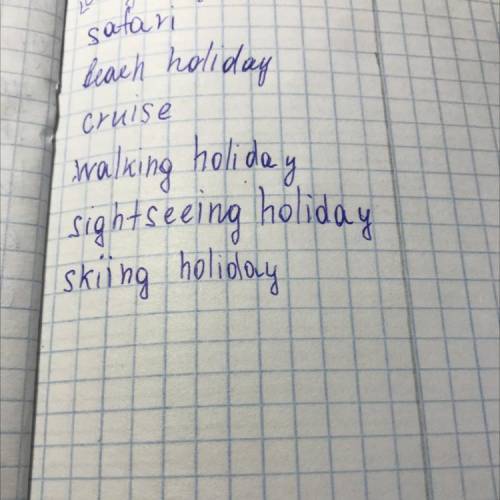 safari
beach holiday
cruise
walking holiday
sightseeing holiday
skiing holiday